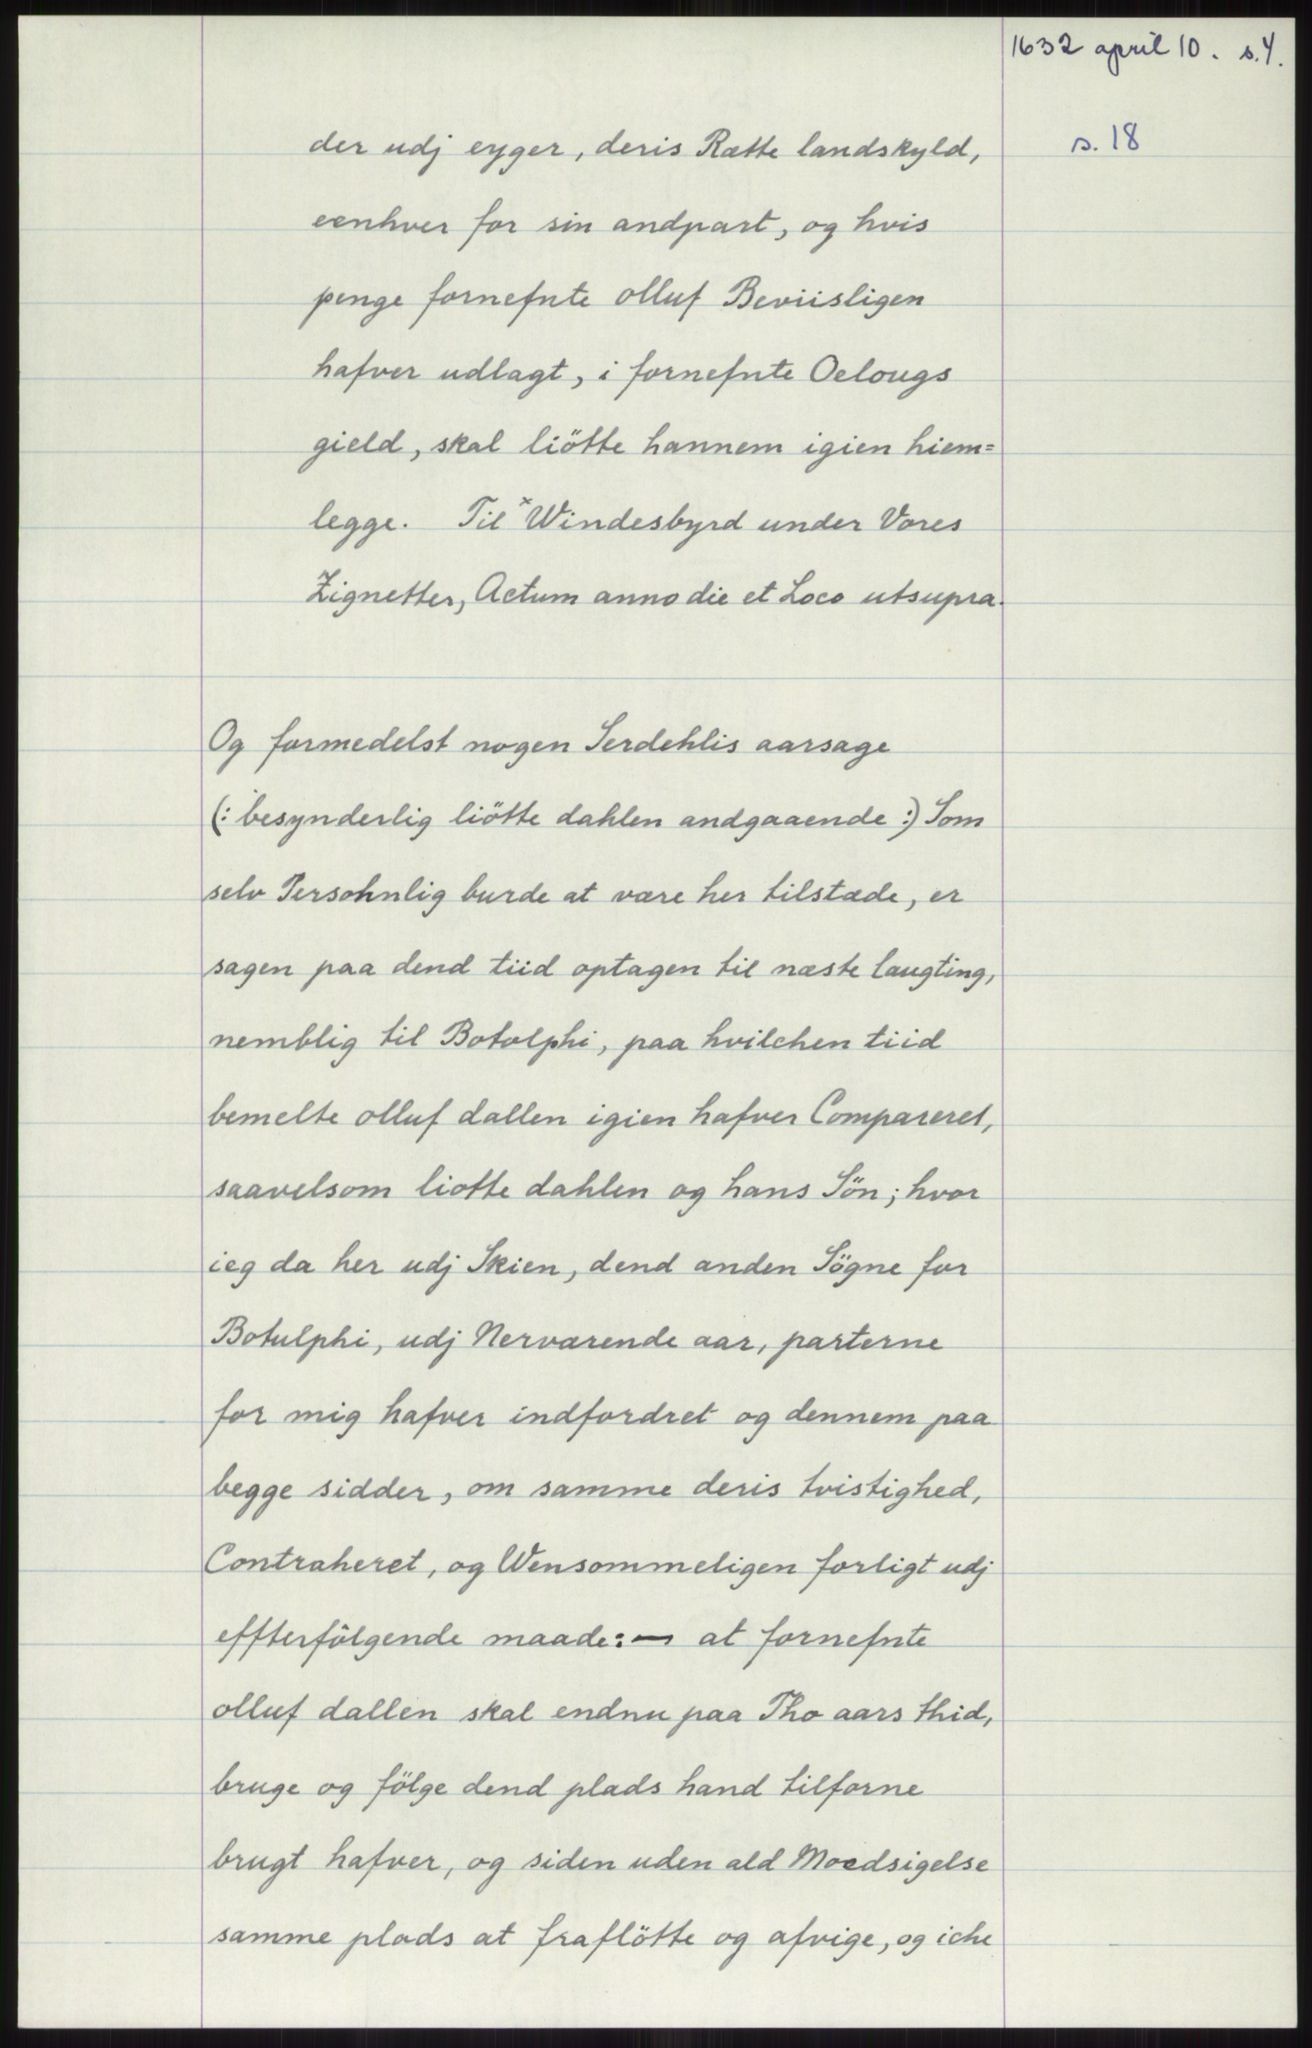 1632 april 10. s.4.
s. 18
der udj eyger, deris Rætte landskyld,
eenhver for sin andpart, og hvis
penge fornefnte olluf Beviisligen
hafver udlagt, i fornefnte Oelougs
gield, skal liötte hannem igien hiem=
legge. Til ˣWindesbyrd under Vores
Zignetter, Actum anno die et Loco utsupra.
Og formedelst nogen Serdehlis aarsage
(: besynderlig liötte dahlen andgaaende :) Som
selv Persohnlig burde at være her tilstæde, er
sagen paa dend tiid optagen til næste laugting,
nemblig til Botolphi, paa hvilchen tiid
bemelte olluf dallen igien hafver Compareret,
saavelsom liotte dahlen og hans Sön; hvor
ieg da her udj Skien, dend anden Sögne for
Botulphi, udj Nerværende aar, parterne
for mig hafver indfordret og dennem paa
begge sidder, om samme deris tvistighed,
Contraheret, og Wensommeligen forligt udj
effterfölgende maade:— at fornefnte
olluf dallen skal endnu paa Tho aars thid,
bruge og fölge dend plads hand tilforne
brugt hafver, og siden uden ald Moedsigelse
samme plads at fraflötte og afvige, og iche